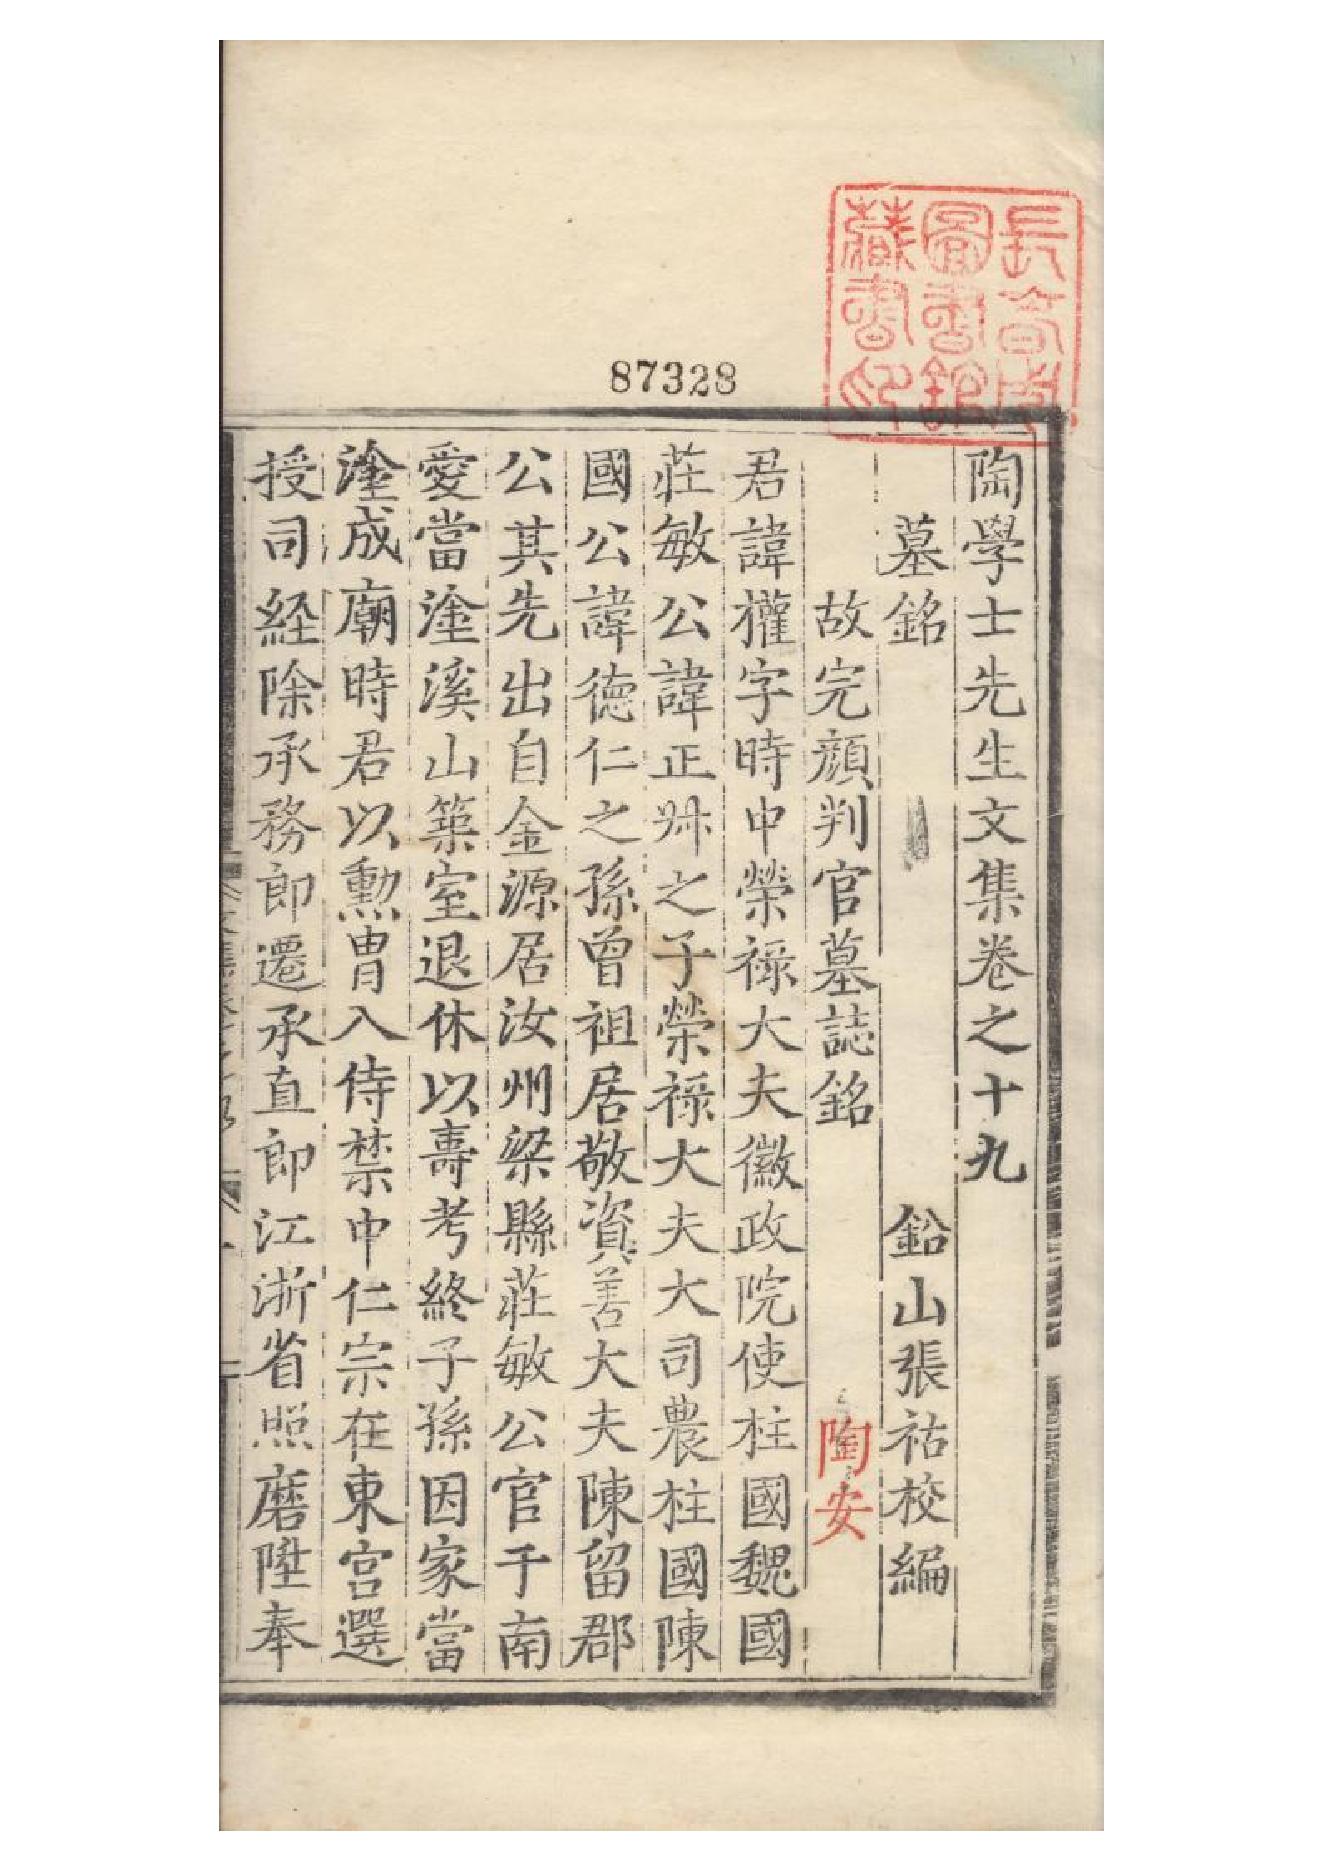 長春市圖書館藏書印
87328
陶學士先生文集卷之十九
墓銘 鉛山張祐校編
故完顏判官墓誌銘 陶安
君諱權字時中榮祿大夫徽政院使柱國魏國
莊敏公諱正叔之子榮祿大夫大司農柱國陳
國公諱德仁之孫曾祖居敬資善大夫陳留郡
公其先出自金源居汝州梁縣莊敏公官于南
愛當塗溪山築室退休以壽考終子孫因家當
塗成廟時君以勳胄入侍禁中仁宗在東宮選
授司経除承務郎遷承直郎江浙省照磨陞奉